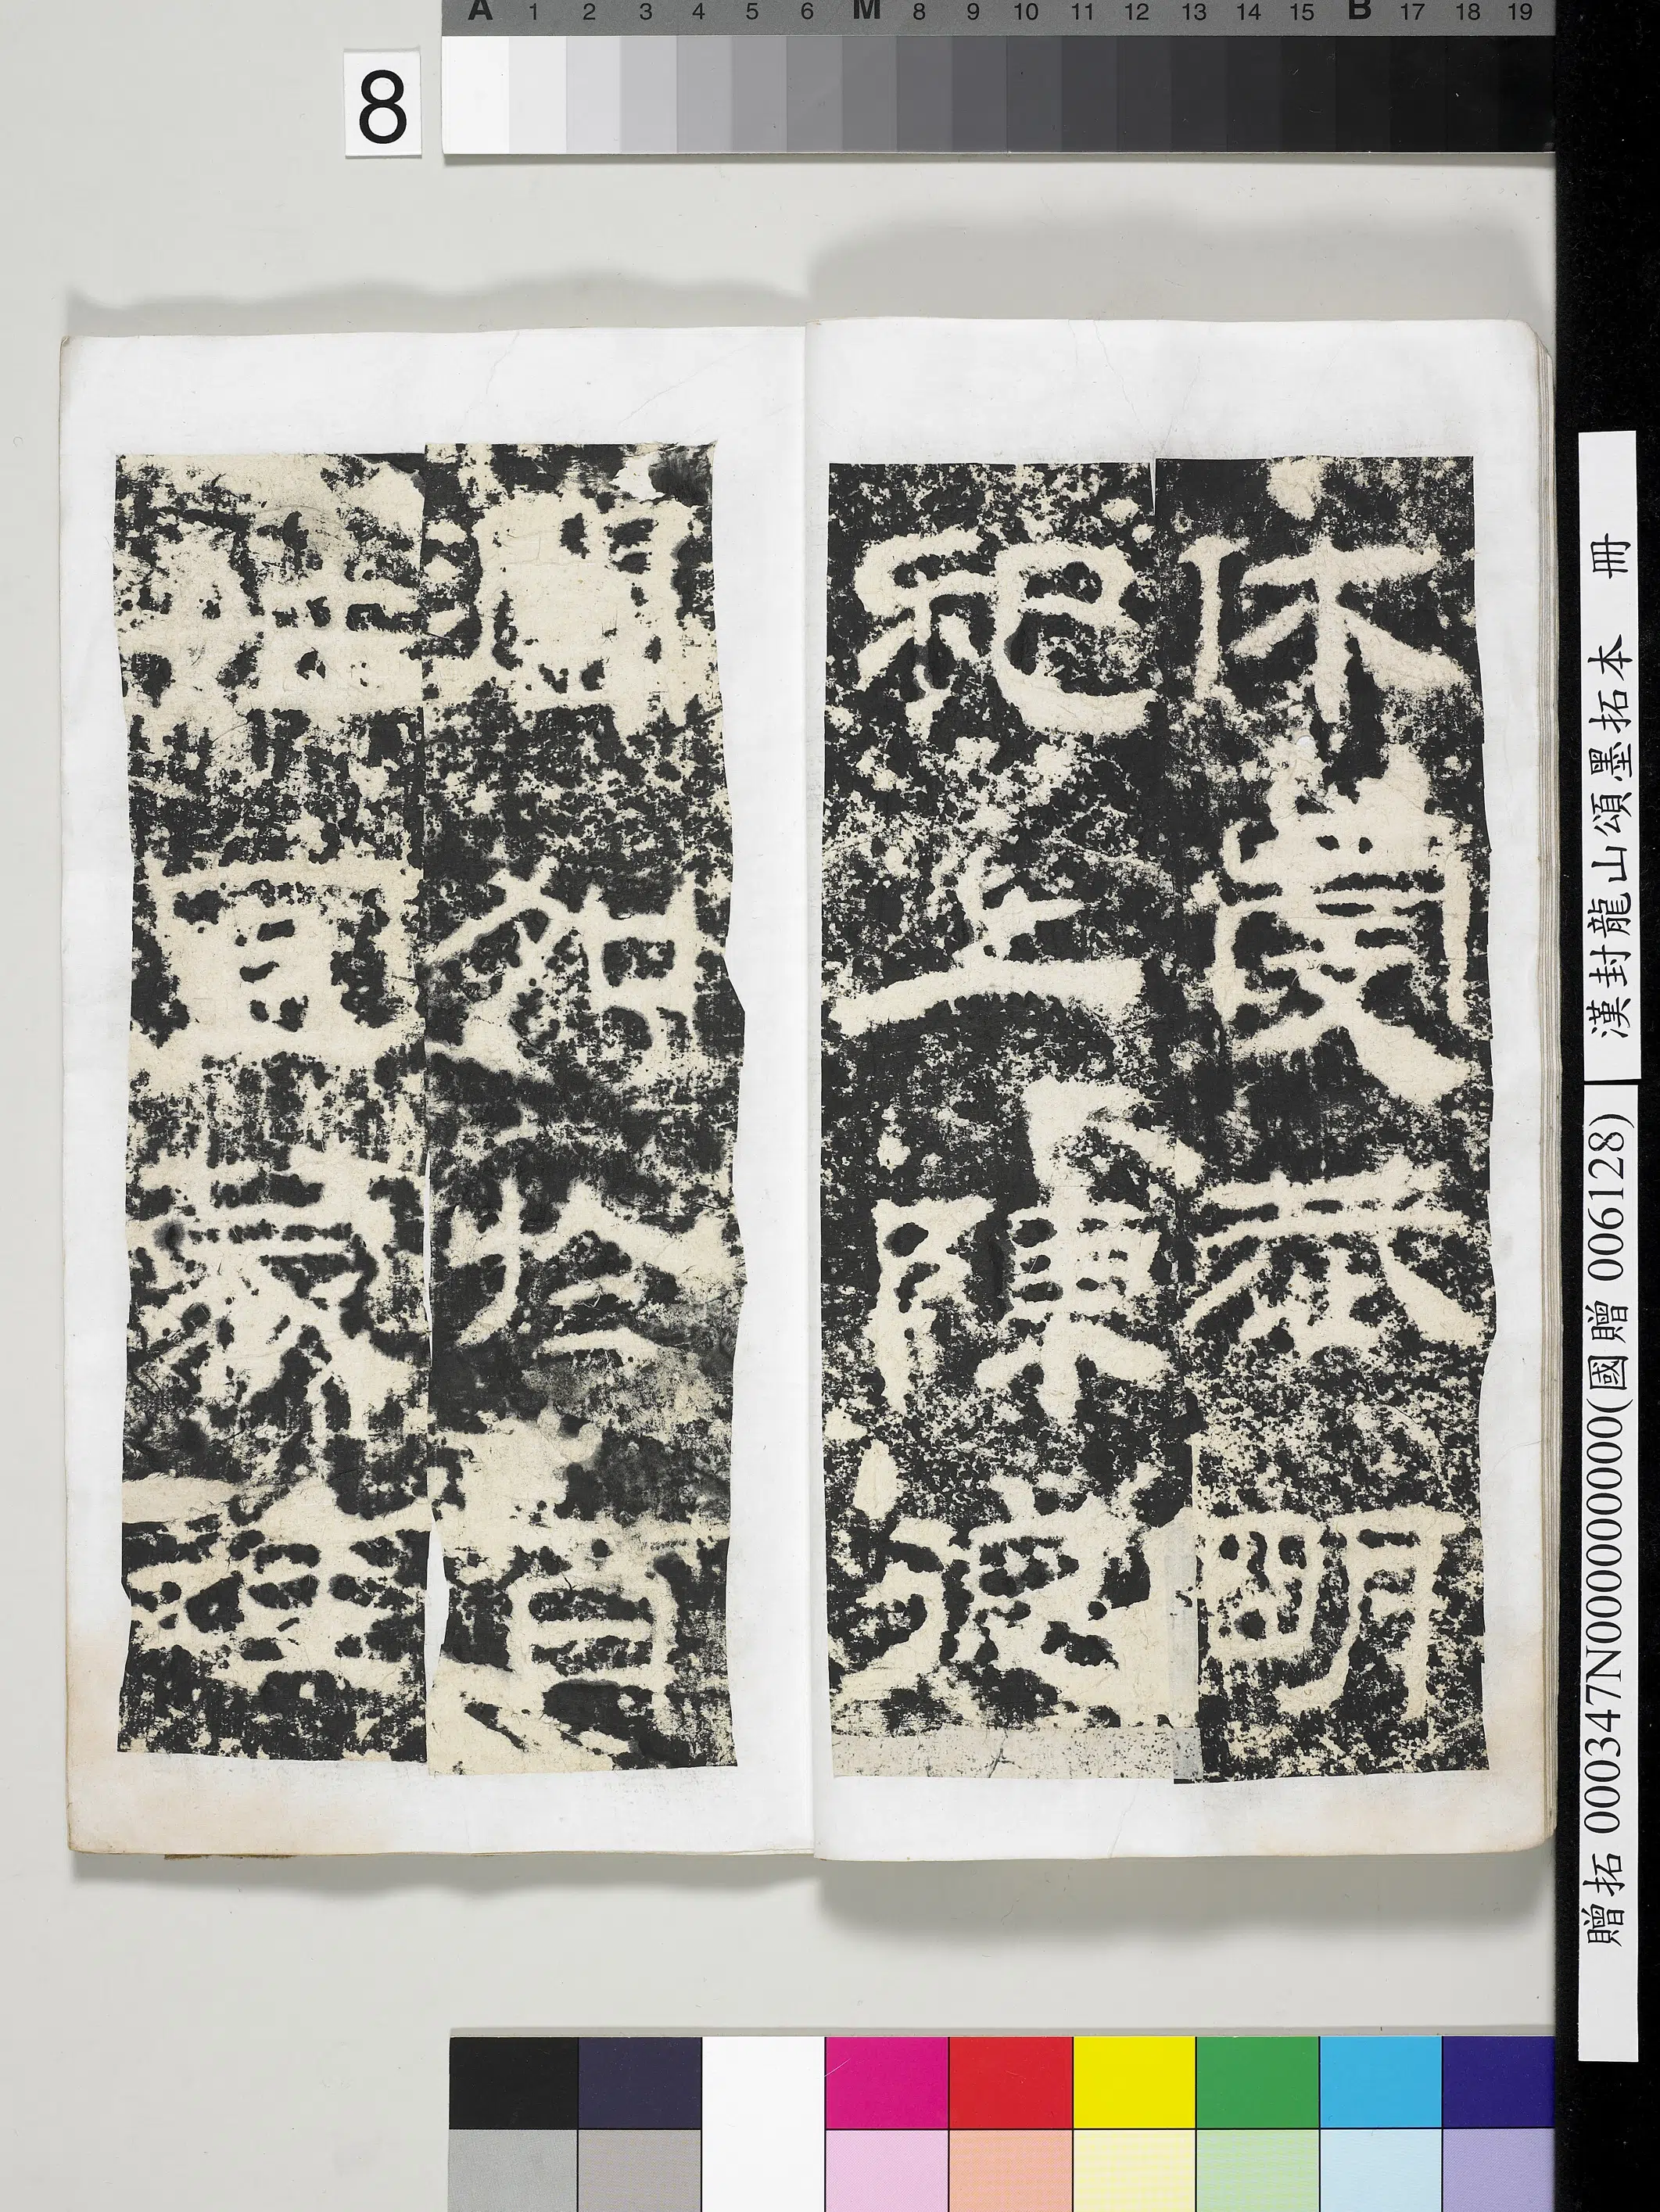 A 1 2 3 4 5 6 M 8 9 10 11 12 13 14 15 B 17 18 19
8
休虔恭明
祀上陳德
潤加於百
姓宜蒙珪
贈拓 000347N000000000(國贈 006128) 漢封龍山頌墨拓本 冊